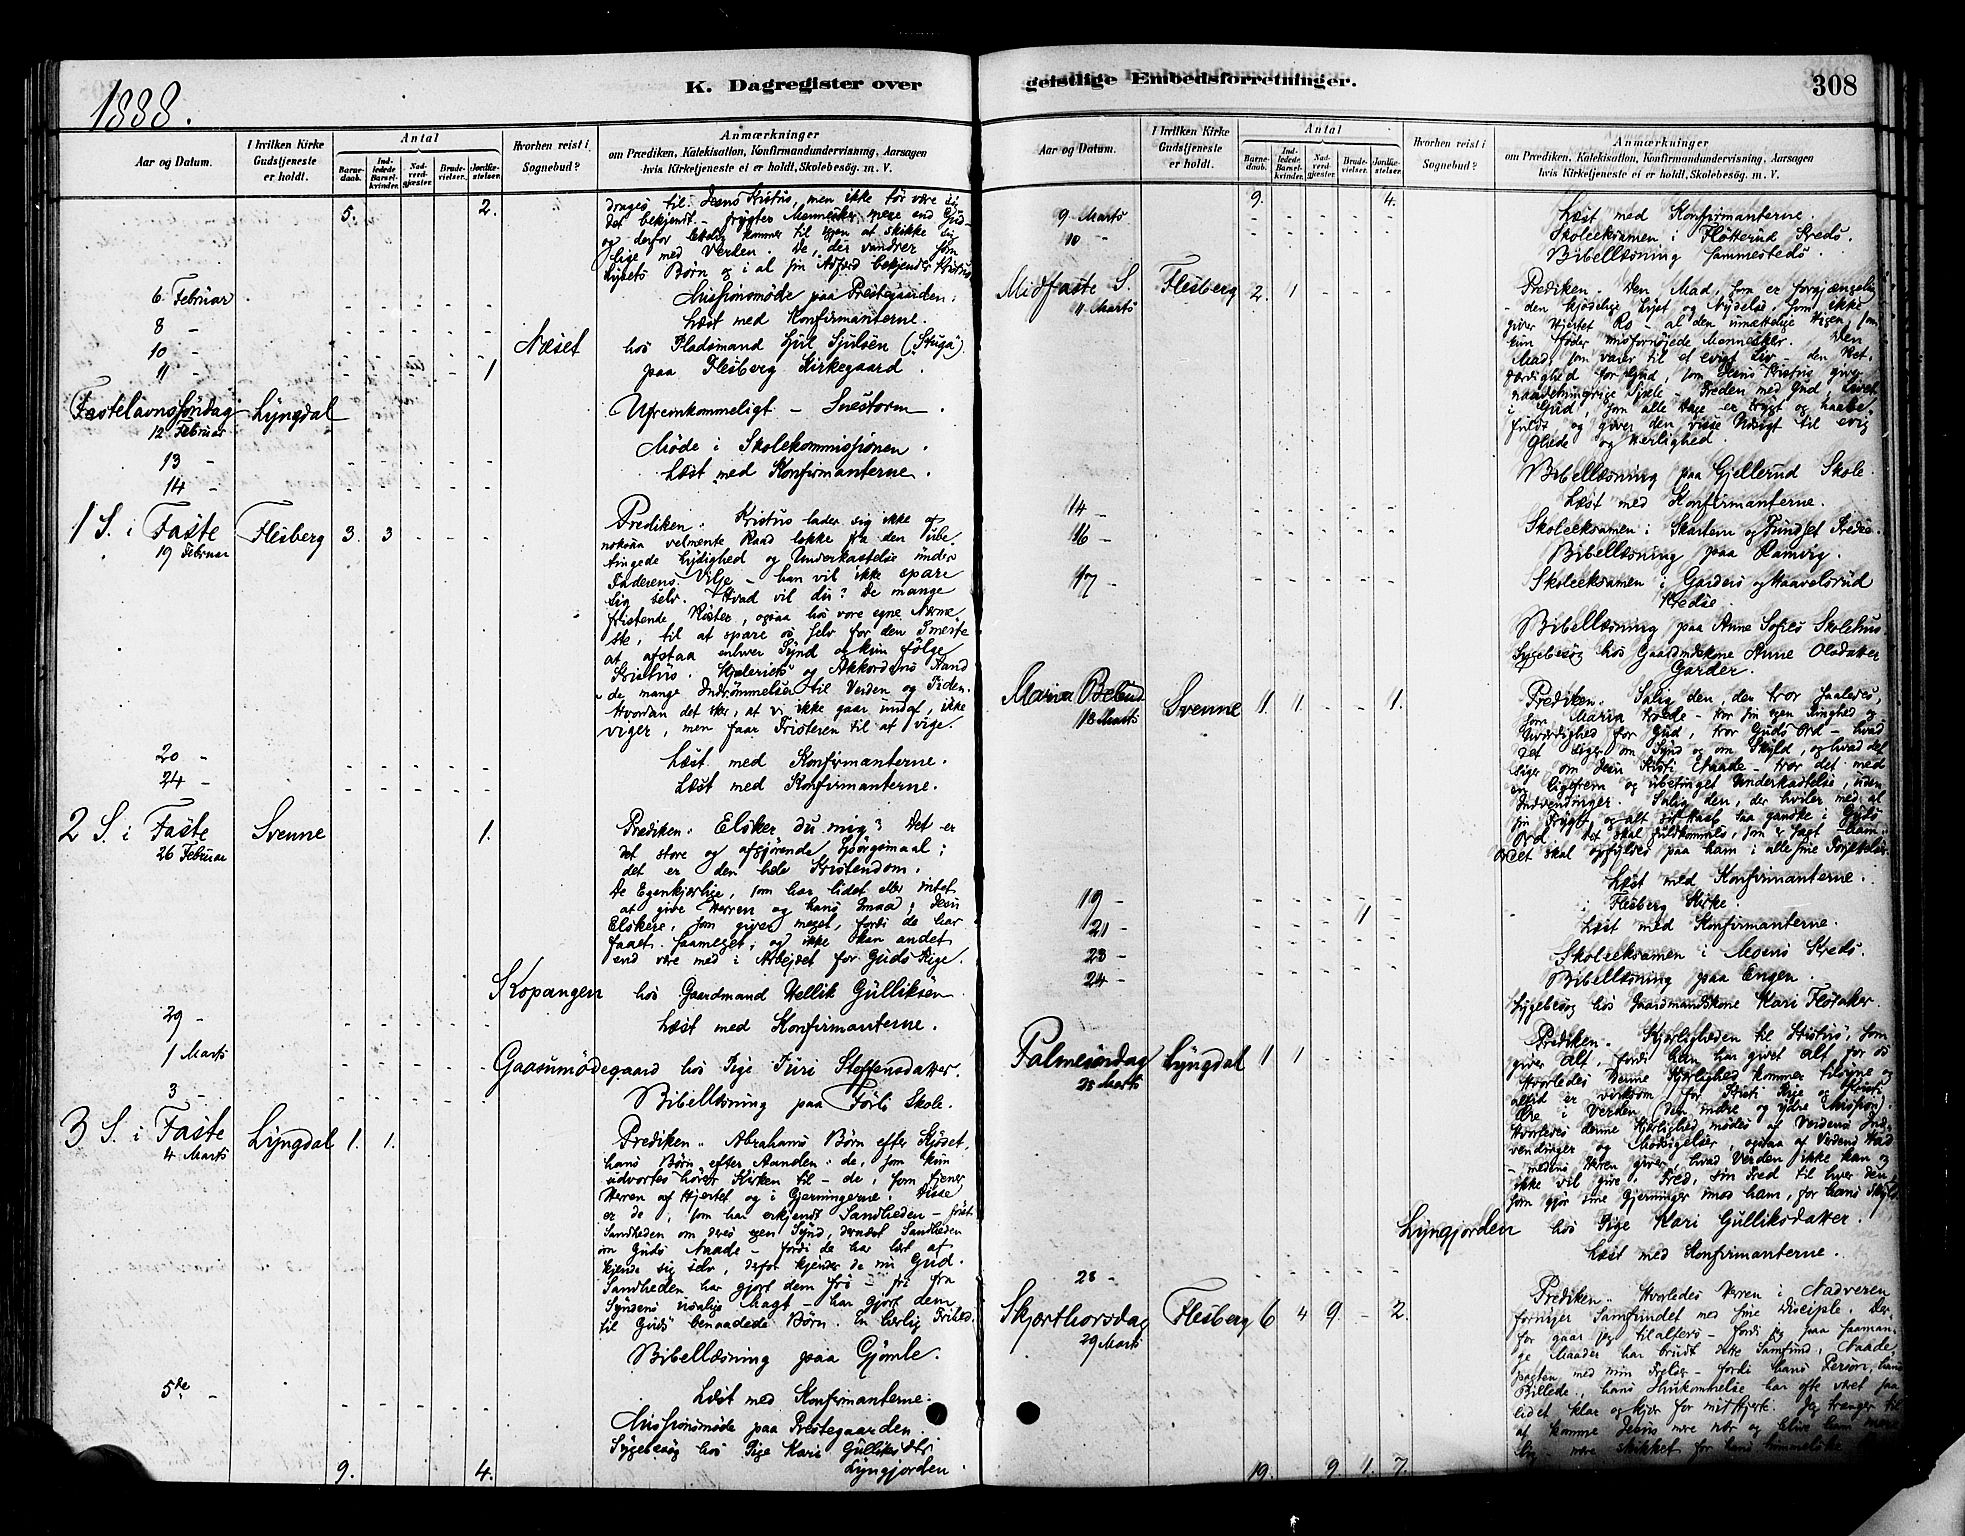 1888.
K. Dagregister over
Aar og Datum.
I hvilken Kirke Gudstjeneste er holdt.
Antal
Barne-daab.
Ind-ledede Barsel-kvinder.
Nad-verd-gjester.
Brude-vielser.
Jordfæ-stelser.
Hvorhen reist i Sognebud?
Anmærkninger
om Prædiken, Katekisation, Konfirmandundervisning, Aarsagen
hvis Kirketjeneste ei er holdt, Skolebesög. m. V.
5. 2. drages til Jesus Kristus, men ikke tør være sig
det bekjendt - frygter Mennesker mere end Gud
og derfor kommer til igjen at skikke sig
lige med Verden. De, der vandrer som
Lysets Børn og i al sin Adfærd bekjender Kristus
6 Februar Missionsmøde paa Prestegaarden.
8 - Læst med Konfirmanterne.
10 - Næset hos Pladsmand Sjulsen (Stuga)
11 - 1 paa Flesberg Kirkegaard.
Fastelavnssøndag Lyngdal Ufremkommeligt - Snestorm.
12 Februar
13 - Møde i Skolekommissionen.
14 - Læst med Konfirmanterne.
1 S. i Faste Flesberg 3. 3 Prediken. Kristus lader sig ikke af
19 Februar
velmente Raad lokke fra den ube-
tingede Lydighed og Underkastelse under
Faderens Vilje - han vil ikke spare
sig selv. Hvad vil du? De mange
fristende Røster, ogsaa hos vore egne Nærme-
ste, til at spare os selv for den Smerte
at afstaa enhver Synd og kun følge
Kristus. og Akkordens Aand
- de mange Indrømmelser til Verden og Tiden.
Hvordan det sker, at vi ikke gaar undaf, ikke
viger, men faar Fristeren til at vige.
20 - Læst med Konfirmanterne.
24 - Læst med Konfirmanterne.
2 S. i Faste Svenne 1. Prediken. Elsker du mig? Det er
26 Februar
det store og afgjørende Spørgsmaal;
det er den hele Kristendom.
De Egenkjærlige, som har lidet eller intet
at give Herren og hans Smaa; Jesu
Elskere, som giver meget, fordi de har
faaet saameget, og ikke kan andet
end være med i Arbejdet for Guds Rige.
Kopangen hos Gaardmand Hellik Gulliksen
29 - Læst med Konfirmanterne.
1 Marts Gaasumødegaard hos Pige Juri Steffensdatter.
3 - Bibellæsning paa Skole.
3 S. i Faste Lyngdal 1. 1. Prediken. Abrahams Børn efter Kjødet,
4 Marts
hans Børn efter Aanden: de, som kun
udvortes hører Kirken til - de, som tjener
Herren af Hjertet og i Gjerningerne. Disse
er de, som har erkjendt Sandheden - først
Sandheden om deres egen Synd, dernæst Sandheden
om Guds Naade - fordi de har lært at
kjende sig selv, derfor kjender de nu Gud.
Sandheden har gjort dem fri - fri fra
Syndens usalige Magt - har gjort dem
til Guds benaadede Børn. En herlig Frihed.
Bibellæsning paa Gjømle.
5te - Læst med Konfirmanterne.
Missionsmøde paa Prestegaarden.
Sygebesøg hos Pige Kari Gulliksdtr
Lyngjorden.
9. 4.
geistlige Embedsforretninger.
308
Aar og Datum.
I hvilken Kirke Gudstjeneste er holdt.
Antal
Barne-daab.
Ind-ledede Barsel-kvinder.
Nad-verd-gjester.
Brude-vielser.
Jordfæ-stelser.
Hvorhen reist i Sognebud?
Anmærkninger
om Prædiken, Katekisation, Konfirmandundervisning, Aarsagen
hvis Kirketjeneste ei er holdt, Skolebesög. m. V.
9. 4.
9 Marts Læst med Konfirmanterne.
10 - Skoleeksamen i Fløtterud Kreds.
Bibellæsning sammesteds.
Midfaste S. Flesberg 2. 1 Prediken. Den Mad, som er forgjængelig
11 Marts
- den kjødelige Lyst og Nydelse, som ikke
giver Hjertet Ro - al den umættelige Higen, som
kun føder misfornøjede Mennesker. Den
Mad, som varer til et evigt Liv - den Ret-
færdighed for Gud, som Jesus Kristus giver
naadehungrige Sjæle - Freden med Gud, Livet
i Gud, som alle Dage er trygt og haabe-
fuldt og giver den visse Udsigt til evig
Glæde og Herlighed.
Bibellæsning paa Gjellerud Skole.
14 - Læst med Konfirmanterne.
16 - Skoleeksamen i Skartum og Kreds.
Bibellæsning paa Ramvig.
17 - Skoleeksamen i Garders og Haavelsrud
Kredse.
Bibellæsning paa Anne Sofies Skolehus
Sygebesøg hos Gaardmdkone Anne Olsdatter
Garder.
Maria Bebud Svenne 1. 1. 1. Prediken. Salig den, der tror saaledes,
18 Marts
som Maria troede - tror sin egen Ringhed og
Uværdighed for Gud, tror Guds Ord - hvad
det siger om Synd og om Skyld, og hvad det
siger om Jesu Kristi Naade - tror det med
en ligefrem og ubetinget Underkastelse, uden
Indvendinger. Salig den, der hviler med al
sin Frygt og alt sit Haab saa ganske i Guds
Ord. Det skal fuldkommes, som er sagt ham.
Ordet skal opfyldes paa ham i alle sine Forjættelser.
19 - Læst med Konfirmanterne.
21 - 1 i Flesberg Kirke.
Læst med Konfirmanterne.
23 - Skoleeksamen i Moens Kreds.
24 - Bibellæsning paa Engen.
Sygebesøg hos Gaardmandskone Kari Flotaker.
Palmesøndag Lyngdal 1 1 Prediken. Kjærligheden til Kristus, som
25 Marts
giver Alt, fordi han har givet Alt for os
Hvorledes denne Kjærlighed kommer tilsyne og
altid er virksom for Kristi Rige og Kristi
Ære i Verden (den indre og ydre Mission).
Hvorledes denne Kjærlighed mødes af Verdens Ind-
vendinger og Modsigelser, ogsaa af Verdens Had
- medens Herren giver, hvad Verden ikke kan og
ikke vil give: Fred, sin Fred til hver den,
som gjør sine Gjerninger imod ham, for hans Skyld.
Lyngjorden hos Pige Kari Gulliksdatter.
28 - Læst med Konfirmanterne.
Skjærthorsdag Flesberg 6 4 9. 2. Prediken. Hvorledes Herren i Nadveren
29 Marts
fornyer Samfundet med sine Disciple. Der-
for gaar jeg tilalters - fordi jeg paa saaman-
ge Maader har brudt dette Samfund, Naade-
pagten med min Frelser - fordi hans Person, hans
Billede, hans Ihukommelse har ofte været saa
lidet klar og kjær for mit Hjerte. Jeg trænger til
at komme Jesus mere nær og blive ham mere
lig - mere skikket for hans himmelske
19. 9 1. 7.